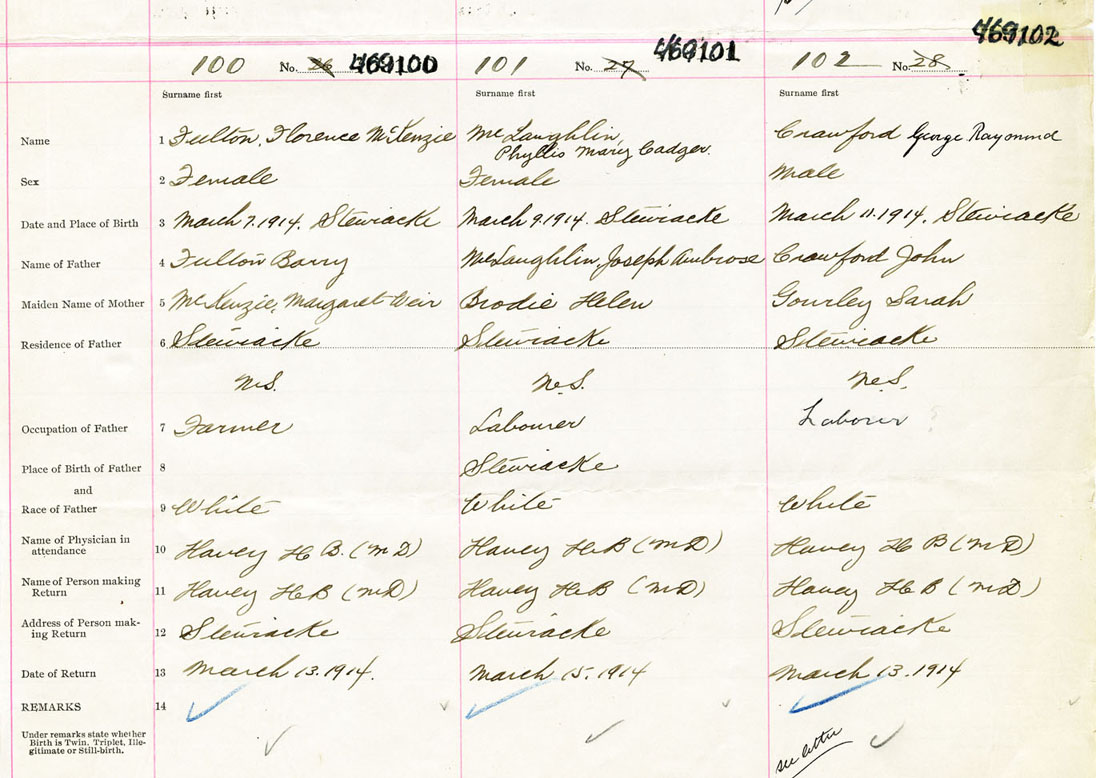 469102
469101
100 No. 26 469100 101 No. 27 102 No. 28
Surname first Surname first Surname first
Name 1 Fulton, Florence McKenzie McLaughlin, Crawford George Raymond
Phyllis Mary Cadger.
Sex 2 Female Female Male
Date and Place of Birth 3 March 7. 1914. Stewiacke March 9. 1914. Stewiacke March 11. 1914, Stewiacke
Name of Father 4 Fulton Barry McLaughlin, Joseph Ambrose Crawford John
Maiden Name of Mother 5 McKenzie, Margaret Weir Brodie Helen Gourley Sarah
Residence of Father 6 Stewiacke Stewiacke Stewiacke
N.S. N.S. N.S.
Occupation of Father 7 Farmer Labourer Laborer
Place of Birth of Father 8 Stewiacke
and
Race of Father 9 White White White
Name of Physician in
attendance 10 Havey H B. (MD) Havey H.B (MD) Havey H B (MD)
Name of Person making
Return 11 Havey H.B (MD) Havey H.B (MD) Havey H.B (MD)
Address of Person mak-
ing Return 12 Stewiacke Stewiacke Stewiacke
Date of Return 13 March 13. 1914. March 15. 1914 March 13. 1914
REMARKS 14
Under remarks state whether
Birth is Twin. Triplet, Ille-
gitimate or Still-birth.
see letter